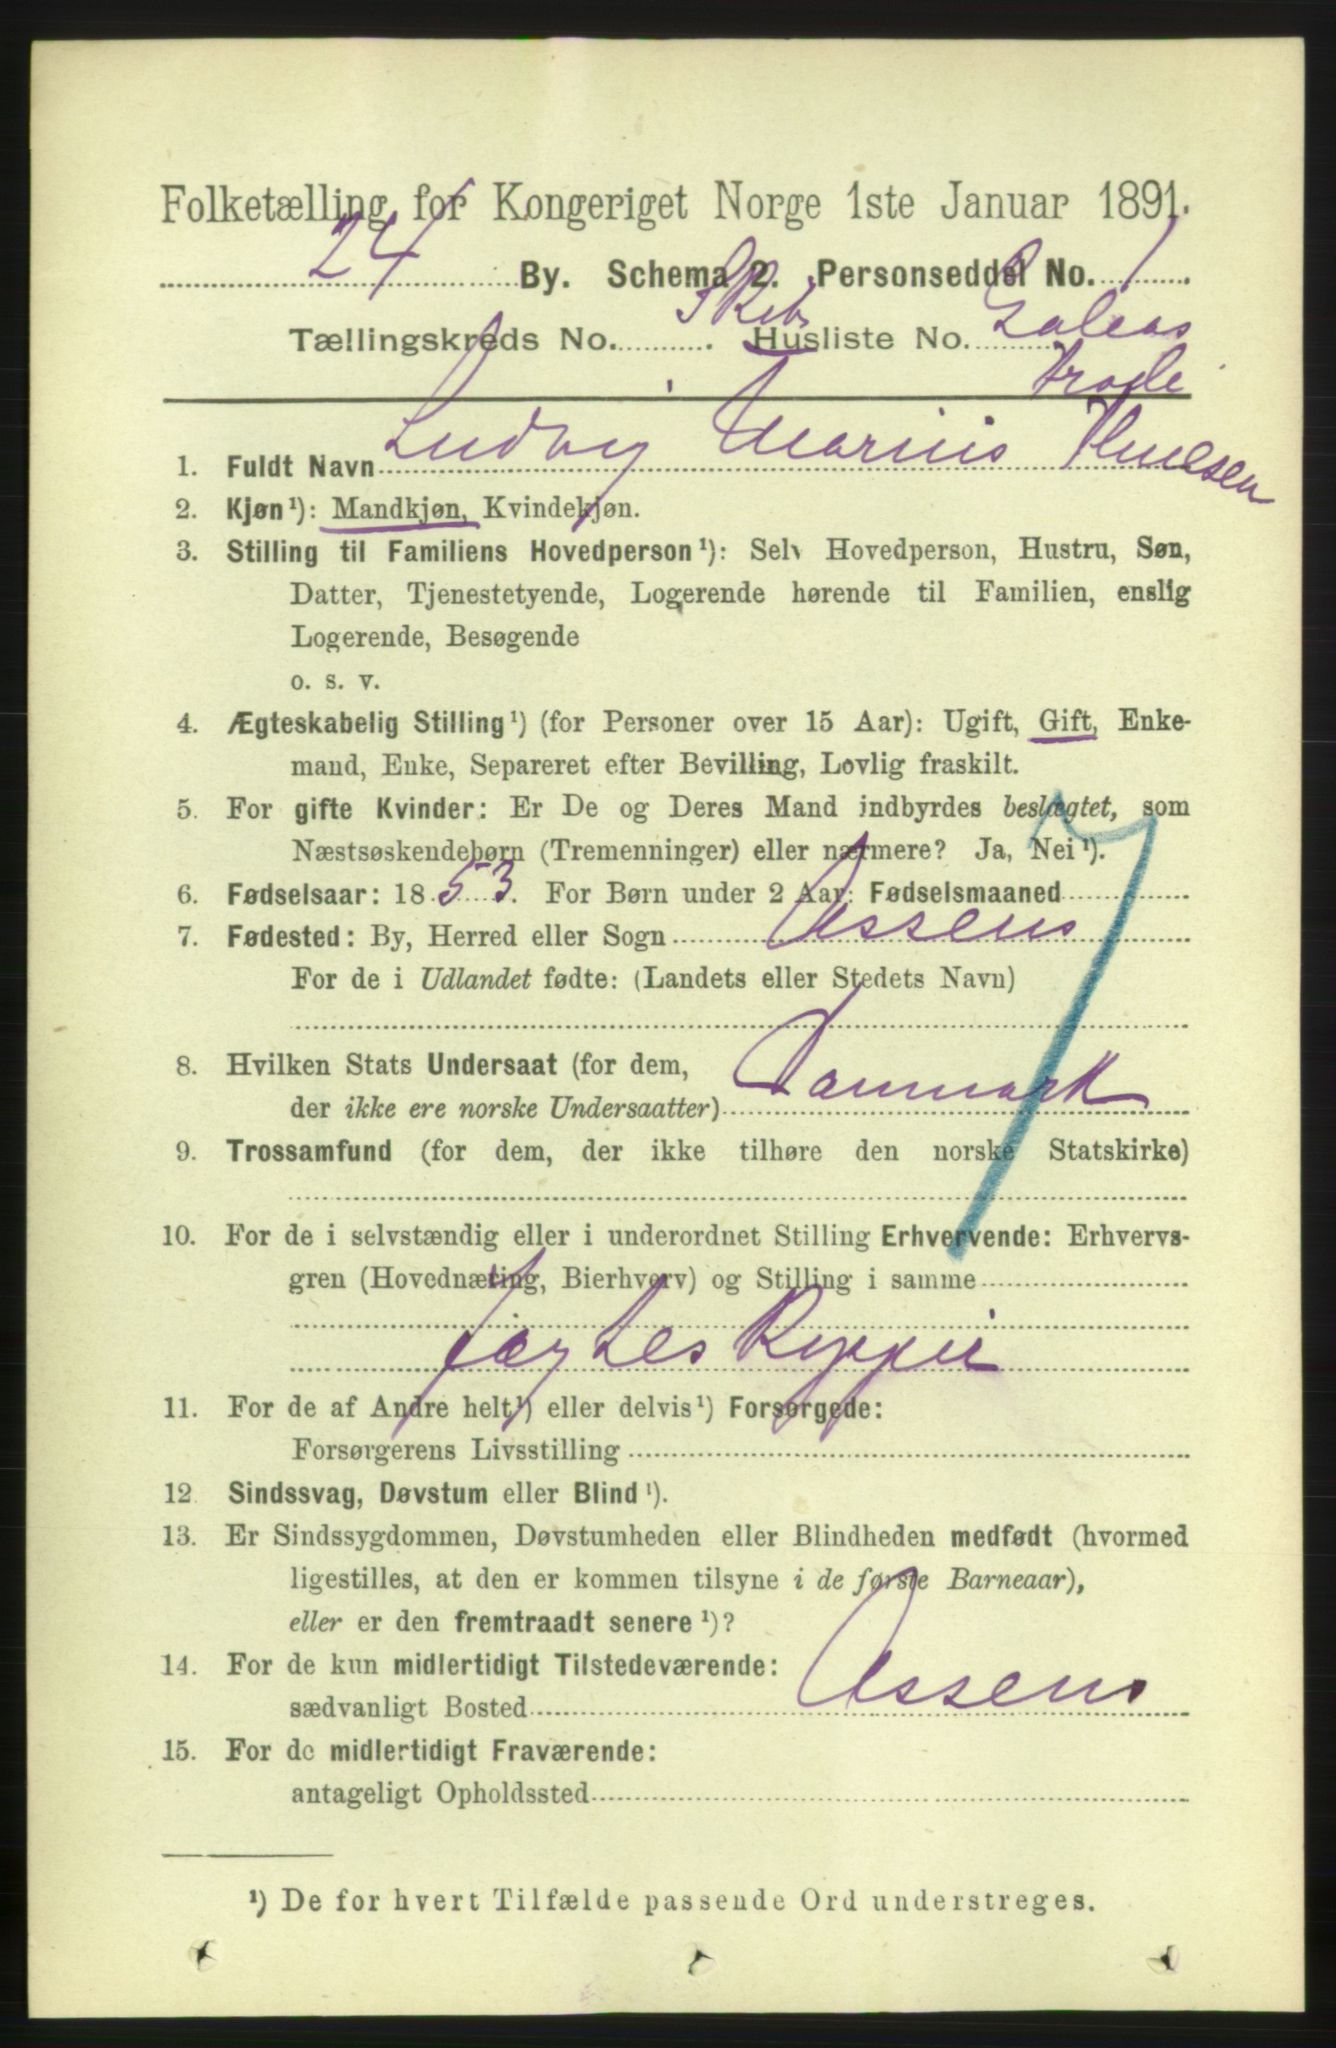 Folketælling for Kongeriget Norge 1ste Januar 1891.
24 By. Schema 2. Personseddel No. 1
Skib
Tællingskreds No. . Husliste No. Galeas
Frode
1. Fuldt Navn Ludvig Marius
2. Kjøn¹): Mandkjøn, Kvindekjøn.
3. Stilling til Familiens Hovedperson¹): Selv Hovedperson, Hustru, Søn,
Datter, Tjenestetyende, Logerende hørende til Familien, enslig
Logerende, Besøgende
o. s. v.
4. Ægteskabelig Stilling¹) (for Personer over 15 Aar): Ugift, Gift, Enke-
mand, Enke, Separeret efter Bevilling, Lovlig fraskilt.
5. For gifte Kvinder: Er De og Deres Mand indbyrdes beslægtet, som
Næstsøskendebørn (Tremenninger) eller nærmere? Ja, Nei¹).
6. Fødselsaar: 1853. For Børn under 2 Aar: Fødselsmaaned
7. Fødested: By, Herred eller Sogn Assens
For de i Udlandet fødte: (Landets eller Stedets Navn)
8. Hvilken Stats Undersaat (for dem,
der ikke ere norske Undersaatter) Danmark
9. Trossamfund (for dem, der ikke tilhøre den norske Statskirke)
10. For de i selvstændig eller i underordnet Stilling Erhvervende: Erhvervs-
gren (Hovednæring, Bierhverv) og Stilling i samme
11. For de af Andre helt¹) eller delvis¹) Forsørgede:
Forsørgerens Livsstilling
12 Sindssvag, Døvstum eller Blind¹).
13. Er Sindssygdommen, Døvstumheden eller Blindheden medfødt (hvormed
ligestilles, at den er kommen tilsyne i de første Barneaar),
eller er den fremtraadt senere¹)?
14. For de kun midlertidigt Tilstedeværende:
sædvanligt Bosted Assens
15. For de midlertidigt Fraværende:
antageligt Opholdssted
¹) De for hvert Tilfælde passende Ord understreges.